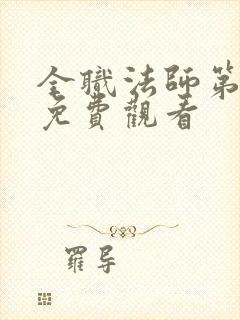 全職法師第
免費觀看
羅导